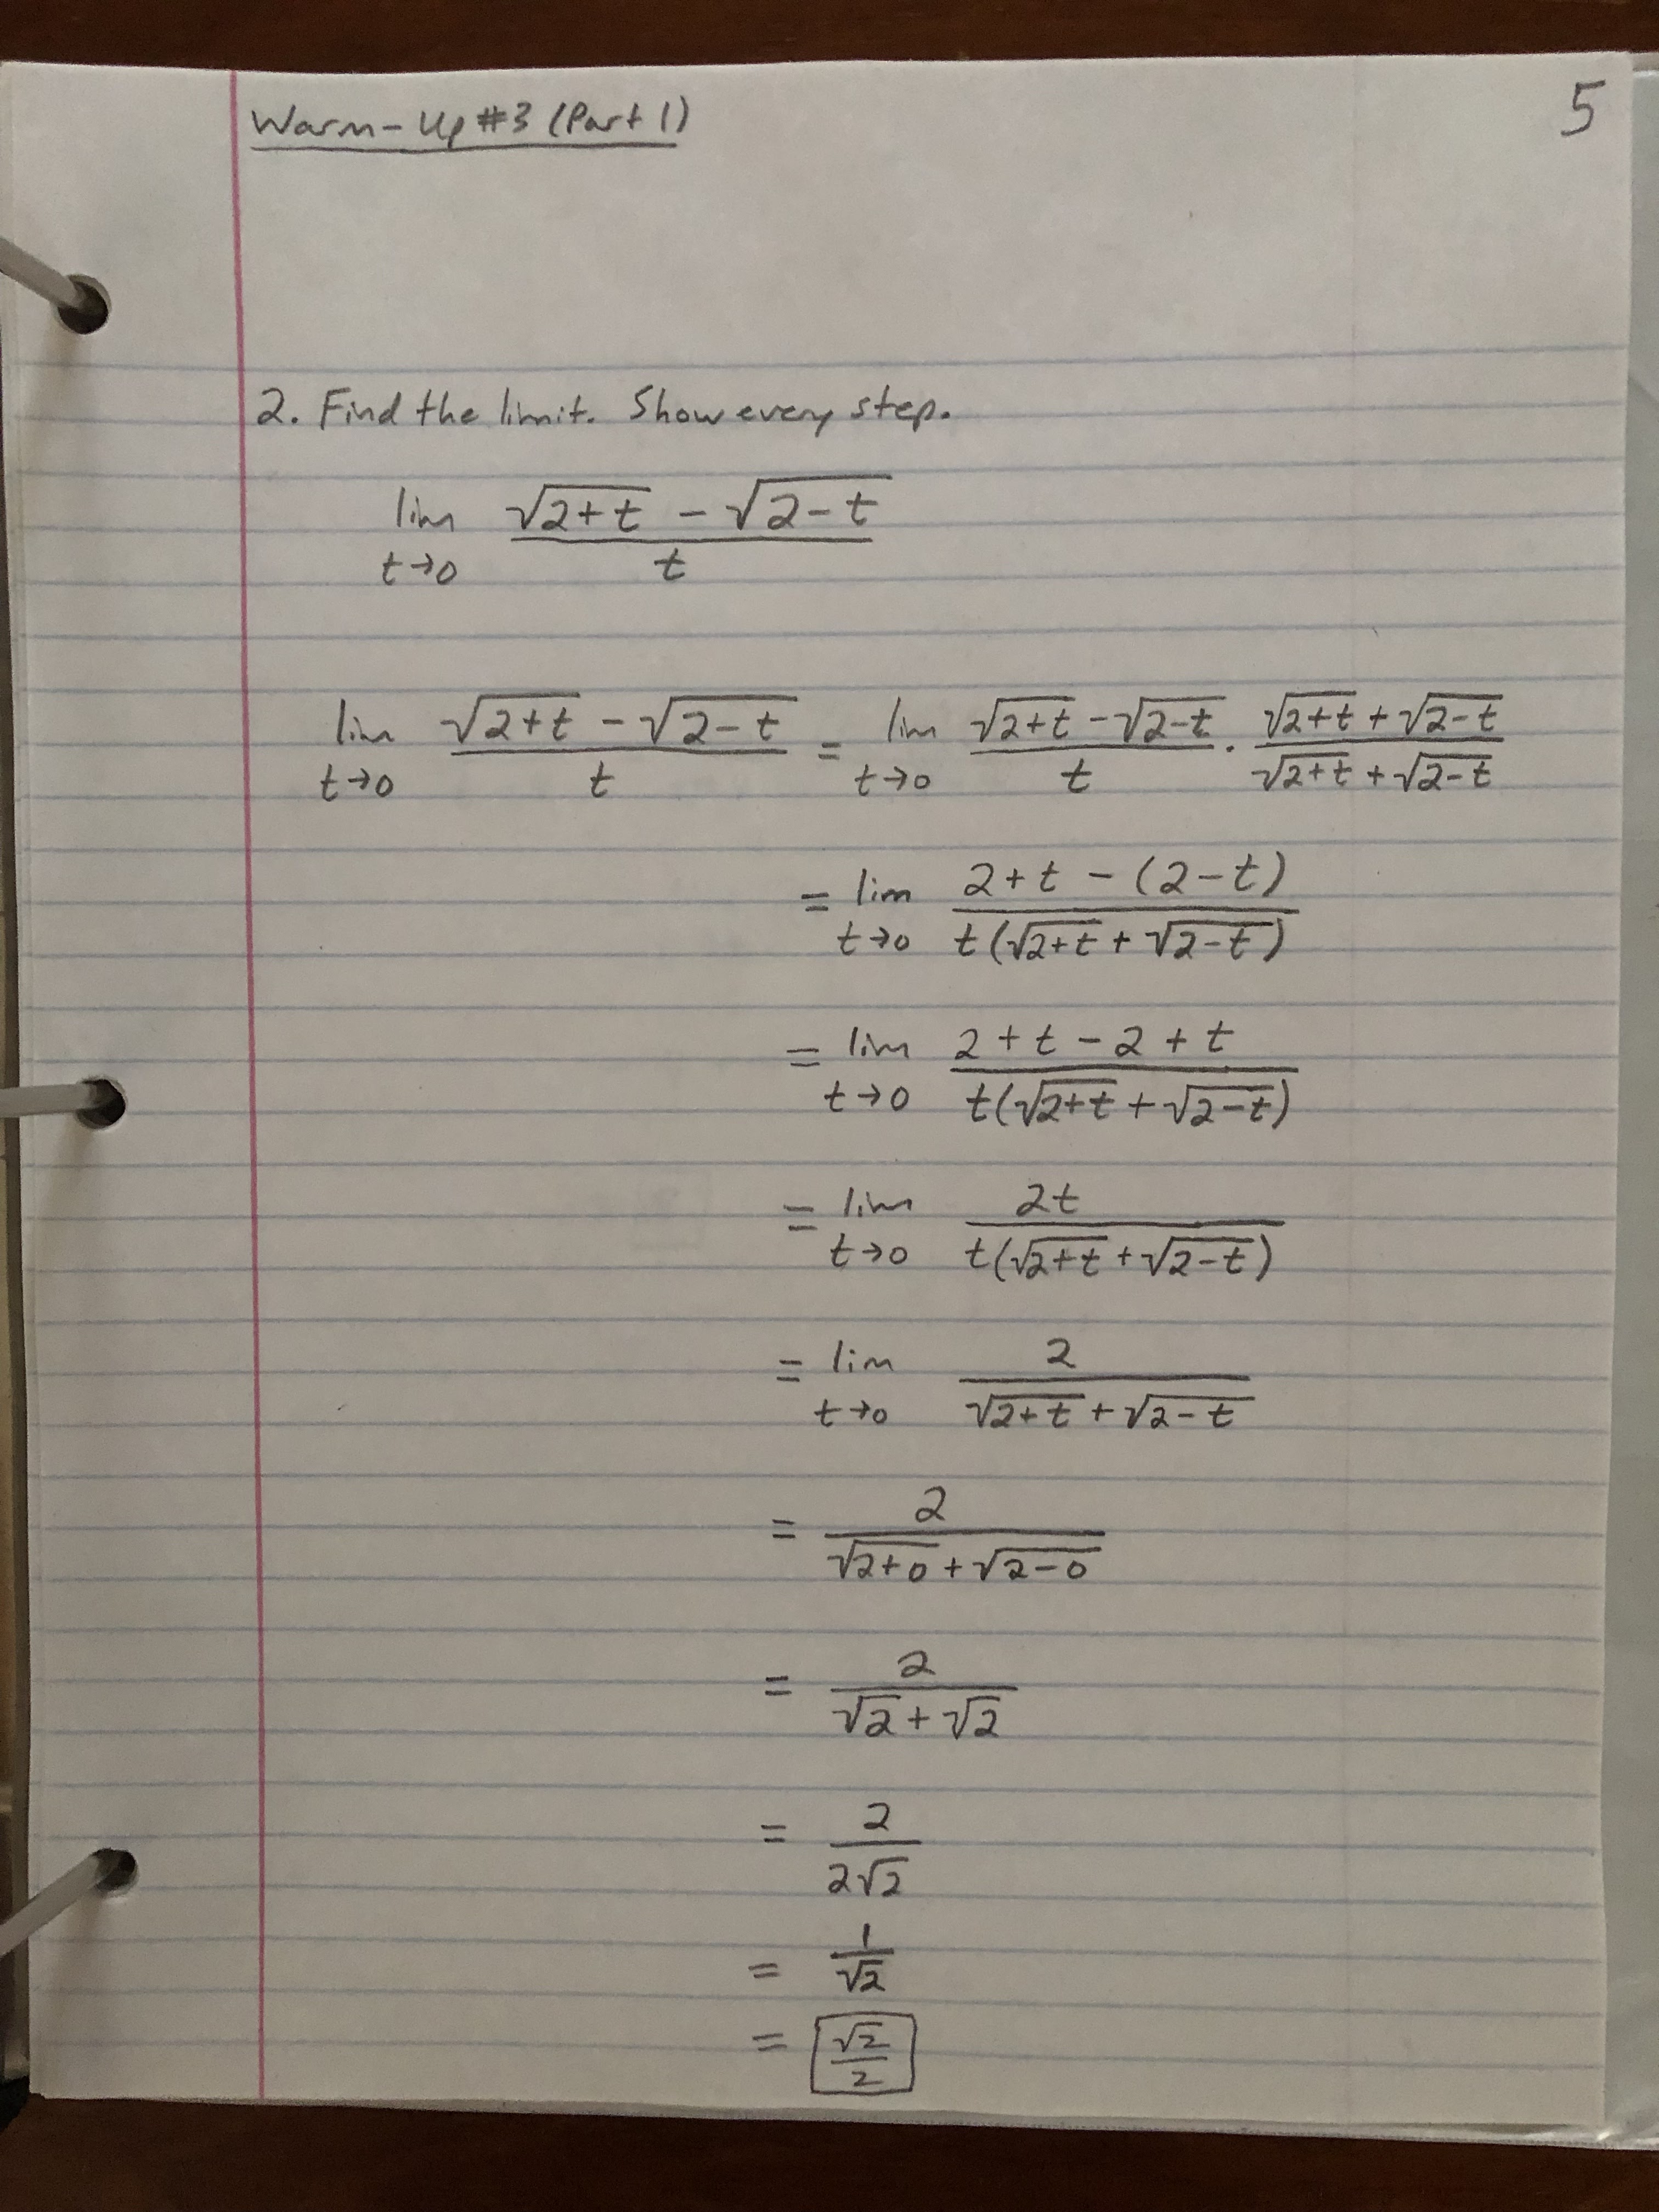 Warm-Up #3 (Part 1)
5
2. Find the limit. Show every step.
lim t→0 (√(2+t) - √(2-t))/t
lim t→0 (√(2+t) - √(2-t))/t = lim t→0 (√(2+t) - √(2-t))/t · (√(2+t) + √(2-t))/(√(2+t) + √(2-t))
= lim t→0 (2+t - (2-t))/(t(√(2+t) + √(2-t)))
= lim t→0 (2+t-2+t)/(t(√(2+t) + √(2-t)))
= lim t→0 2t/(t(√(2+t) + √(2-t)))
= lim t→0 2/(√(2+t) + √(2-t))
= 2/(√(2+0) + √(2-0))
= 2/(√2 + √2)
= 2/(2√2)
= 1/√2
= √2/2